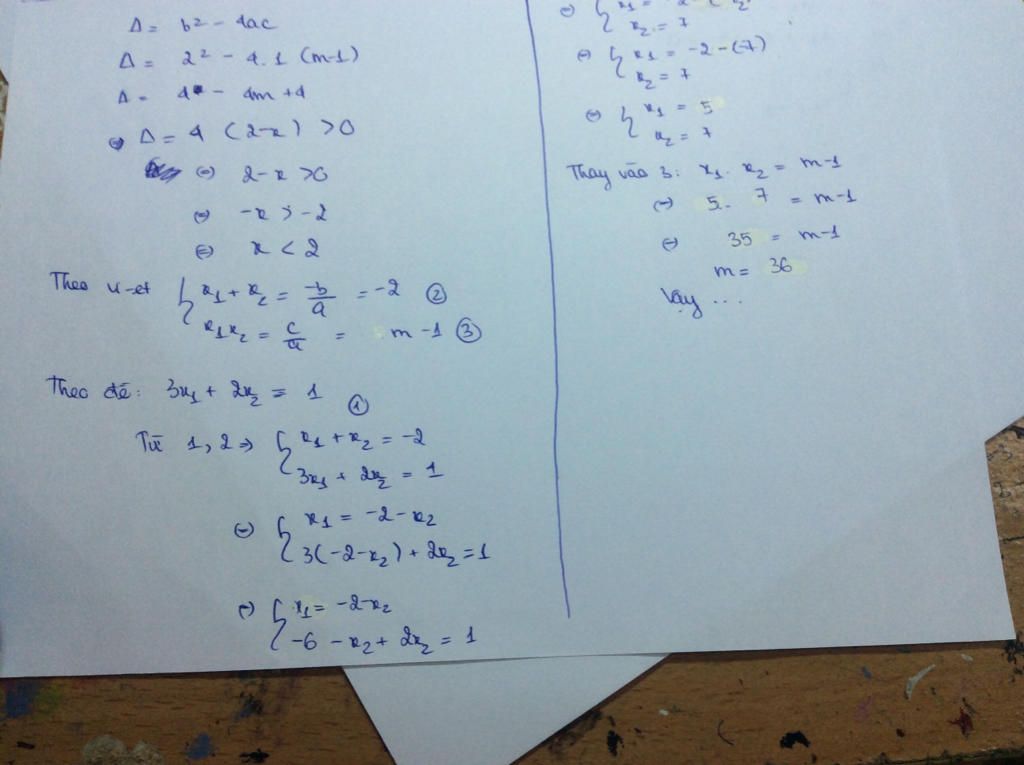 Δ = b² - 4ac
Δ = 2² - 4.1 (m-1)
Δ = 4 - 4m + 4
⇒ Δ = 4 (2-x) > 0
⇔ 2-x > 0
⇔ -x > -2
⇔ x < 2
Theo vi-et { x₁ + x₂ = -b/a = -2 ②
x₁x₂ = c/a = m - 1 ③
Theo đề: 3x₁ + 2x₂ = 1 ①
Từ 1, 2 ⇒ { x₁ + x₂ = -2
3x₁ + 2x₂ = 1
⇔ { x₁ = -2 - x₂
3(-2-x₂) + 2x₂ = 1
⇔ { x₁ = -2-x₂
-6 - x₂ + 2x₂ = 1
x₂ = 7
⇔ { x₁ = -2 - (-7)
x₂ = 7
⇔ { x₁ = 5
x₂ = 7
Thay vào 3: x₁ . x₂ = m-1
⇔ 5 . 7 = m-1
⇔ 35 = m-1
m = 36
Vậy ...